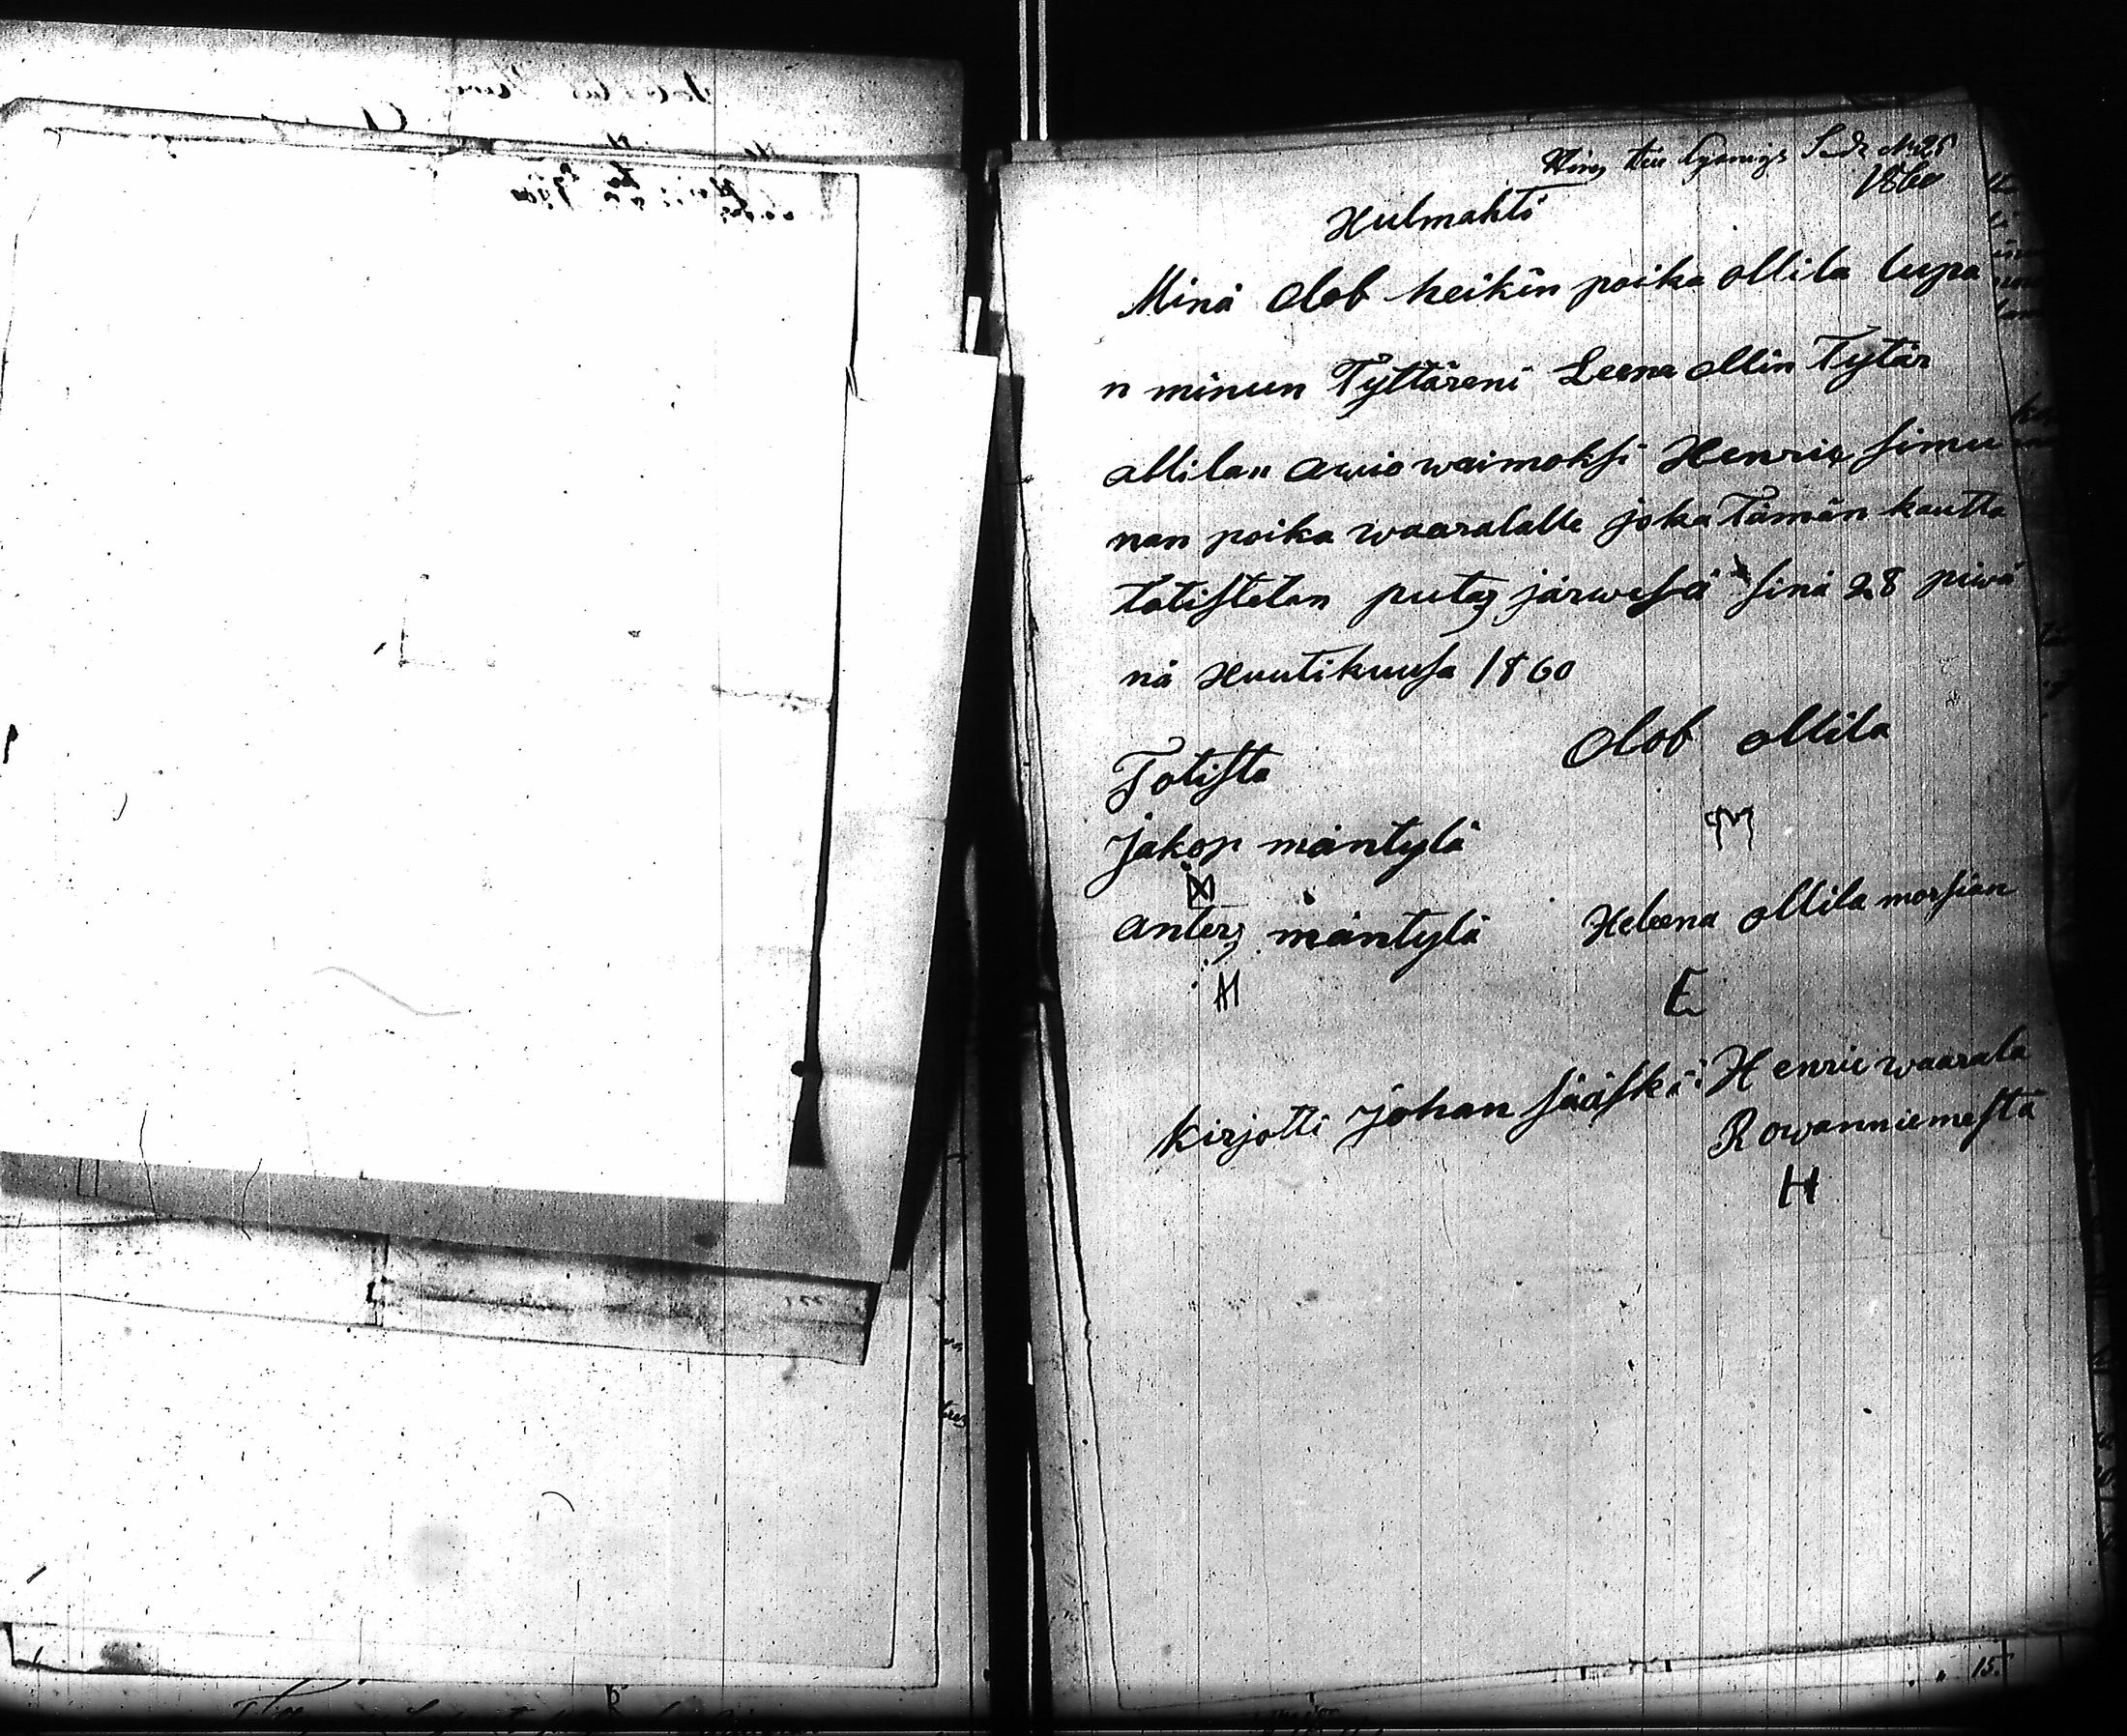 1860
Hulmahti
Minä Olob heikin poika ollila lupa
n minun Tyttäreni Leena ollin Tytär
ollilan awio waimoksi Henrik simu
nan poika waaralalle joka Tämän kautta
totistetan putas järwesä sinä 28 piwä
nä Huutikuusa 1860
Olob ollila
Totista
Jakop mäntylä
anters mäntylä
Heleena ollila morsian
M
E
Henric waarala
kirjotti Johan sääskä
Rowanniemestä
H
15.